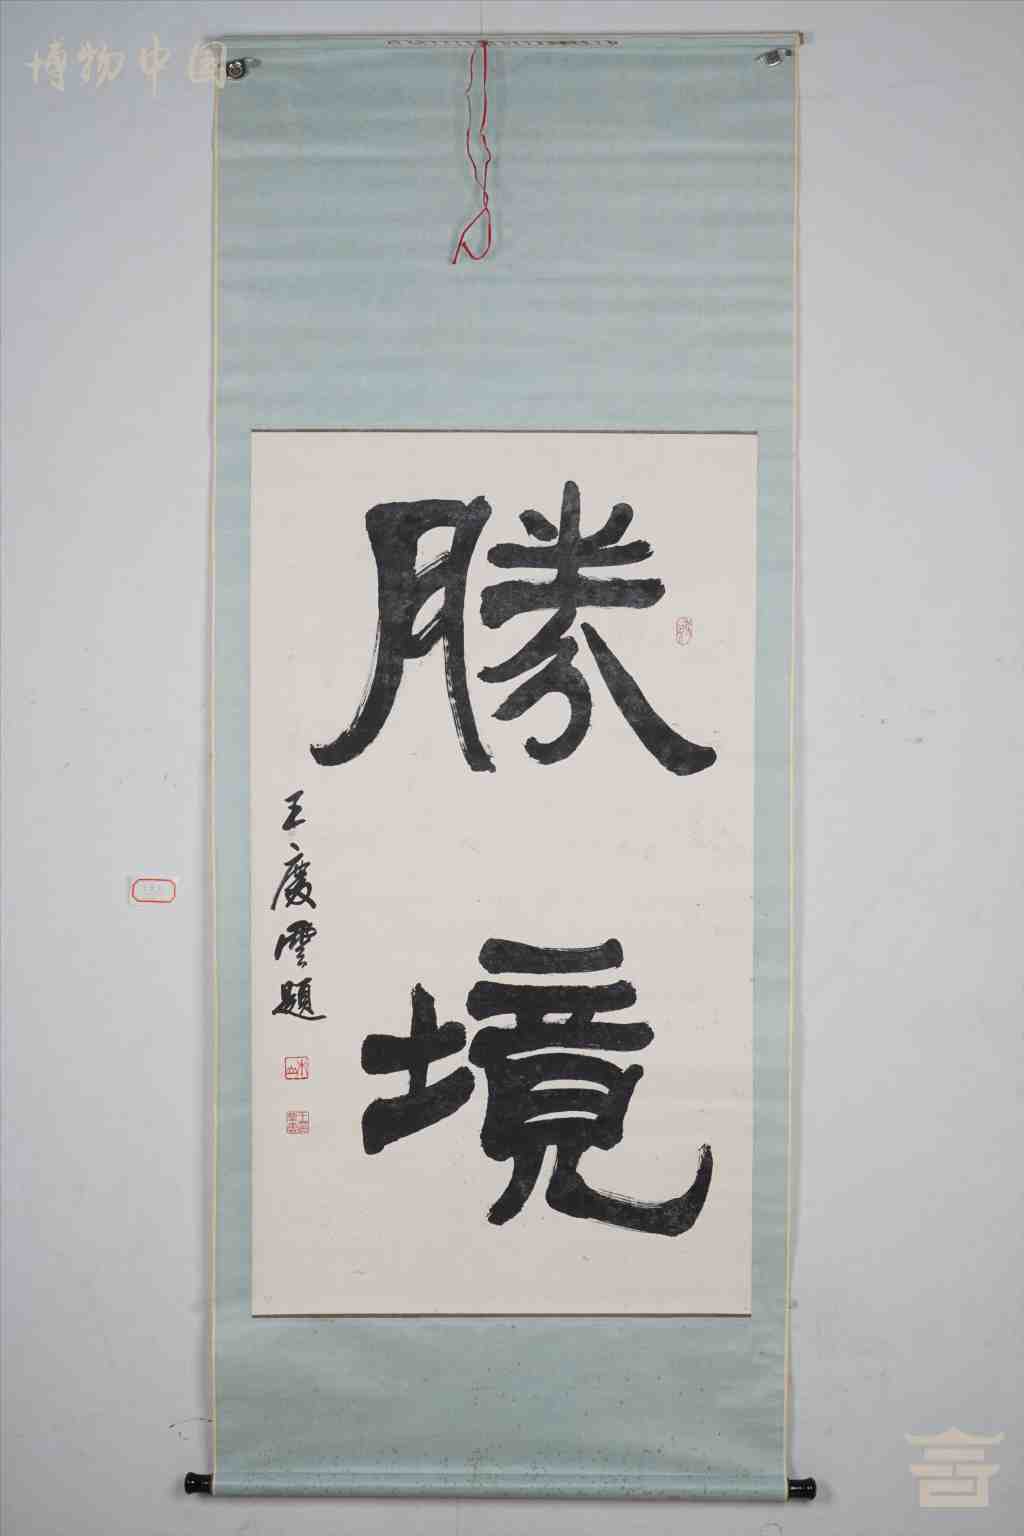 博物中国
勝
境
王慶雲題